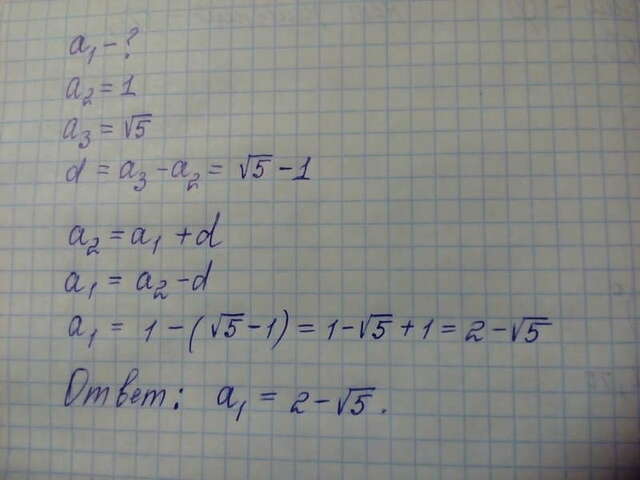 a₁ - ?
a₂ = 1
a₃ = √5
d = a₃ - a₂ = √5 - 1
a₂ = a₁ + d
a₁ = a₂ - d
a₁ = 1 - (√5 - 1) = 1 - √5 + 1 = 2 - √5
Ответ: a₁ = 2 - √5.